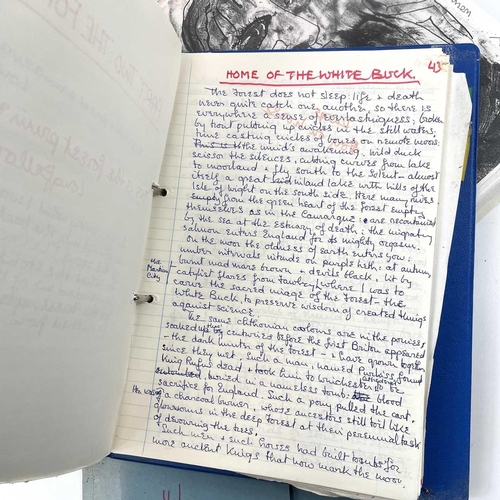 43
HOME OF THE WHITE BUCK.
The Forest does not sleep: life + death
never quite catch one another, so there is
everywhere a sense of everlastingness; broken
by trout putting up circles in the still waters,
time casting circles of bones on remote moors:
the mind's awakening. Wild duck
scissor the silences, cutting curves from lake
to moorland + fly south to the Solent - almost
itself a great inland lake with hills of the
Isle of Wight on the south side. Here many rivers
from the green heart of the Forest empty
themselves as in the Camargue: are
by the sea at the estuary of death; the migrating
salmon enters England for its mighty orgasm.
On the moor the oldness of earth enters you:
umber intervals intrude on purple heth: at autumn,
burnt mars brown + devils black, lit by
catalyst flares from Fawley, where I was to
the
Martian
City
carve the sacred mirage of the Forest - the
White Buck, to preserve wisdom of created things
against science.
The same chthonian colours are in the ponies,
soaked up centuries before the first Briton appeared
- the dark hunter of the forest - + have grown together
since they met. Such a man, named Purkiss, found
King Rufus dead + took him to Winchester to be
buried in a nameless tomb: blood
sacrifice for England. Such a pony pulled the cart,
He was
of a charcoal burner, whose ancestors still toil like
in the deep Forest at their perennial task
of devouring the trees.
Such men + such horses had built tombs for
more ancient Kings that now mark the moor